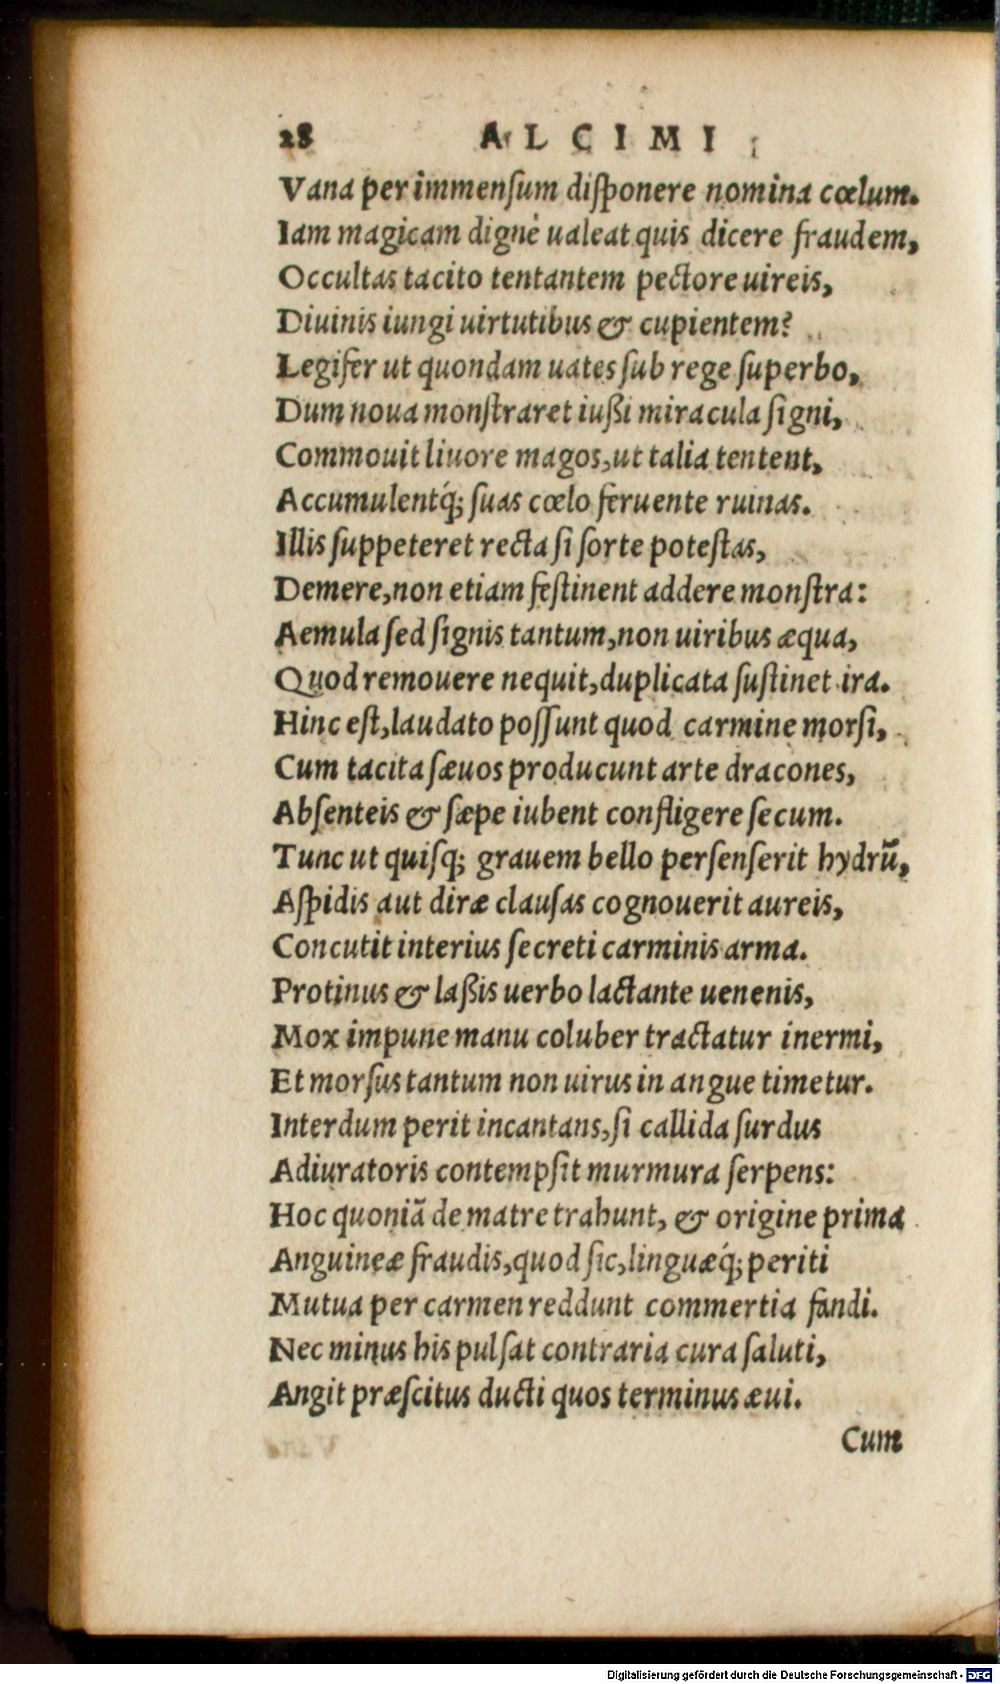 28 ALCIMI
Vana per immenſum diſponere nomina cœlum.
Iam magicam dignè ualeat quis dicere fraudem,
Occultas tacito tentantem pectore uireis,
Diuinis iungi uirtutibus & cupientem?
Legifer ut quondam uates ſub rege ſuperbo,
Dum noua monſtraret iußi miracula ſigni,
Commouit liuore magos, ut talia tentent,
Accumulentq́; ſuas cœlo feruente ruinas.
Illis ſuppeteret recta ſi ſorte poteſtas,
Demere, non etiam feſtinent addere monſtra:
Aemula ſed ſignis tantum, non uiribus æqua,
Quod remouere nequit, duplicata ſuſtinet ira.
Hinc eſt, laudato poſſunt quod carmine morſi,
Cum tacita ſæuos producunt arte dracones,
Abſenteis & ſæpe iubent confligere ſecum.
Tunc ut quiſq; grauem bello perſenſerit hydrũ,
Aſpidis aut diræ clauſas cognouerit aureis,
Concutit interius ſecreti carminis arma.
Protinus & laßis uerbo lactante uenenis,
Mox impune manu coluber tractatur inermi,
Et morſus tantum non uirus in angue timetur.
Interdum perit incantans, ſi callida ſurdus
Adiuratoris contempſit murmura ſerpens:
Hoc quoniã de matre trahunt, & origine prima
Anguineæ fraudis, quod ſic, linguæq́; periti
Mutua per carmen reddunt commertia fandi.
Nec minus his pulſat contraria cura ſaluti,
Angit præſcitus ducti quos terminus æui.
Cum
Digitalisierung gefördert durch die Deutsche Forschungsgemeinschaft - DFG